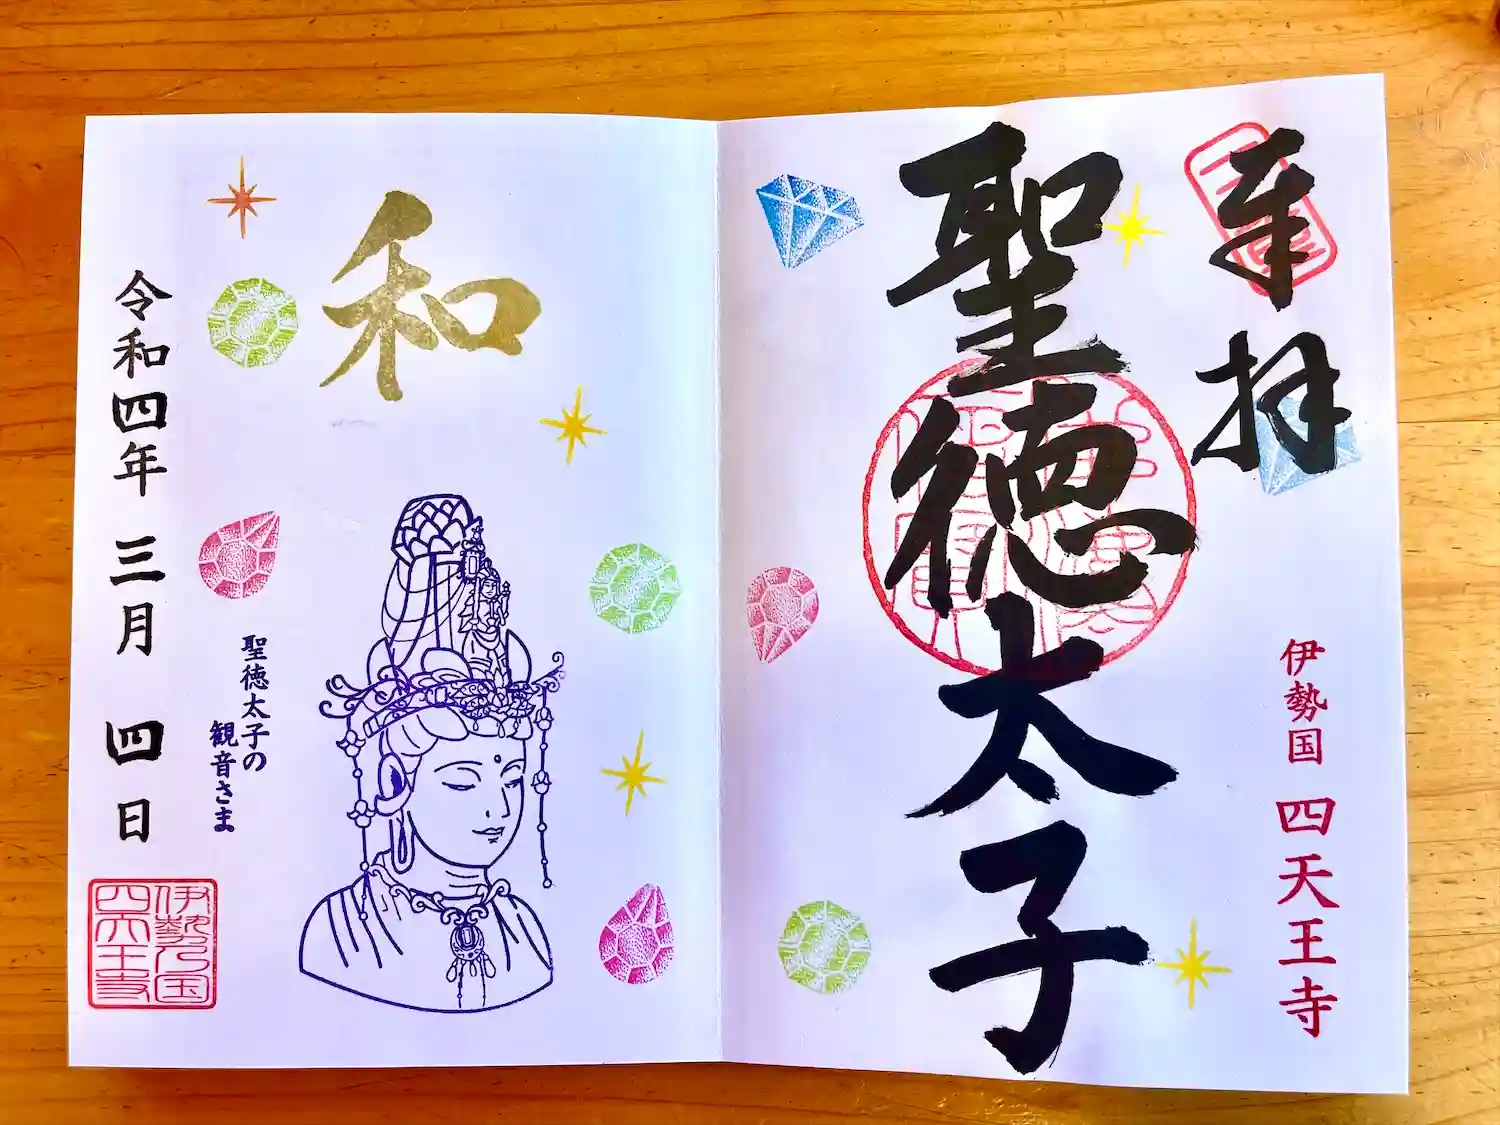 奉拝
聖徳太子
伊勢国 四天王寺
和
聖徳太子の
観音さま
令和四年 三月 四日
伊勢乃国
四天王寺